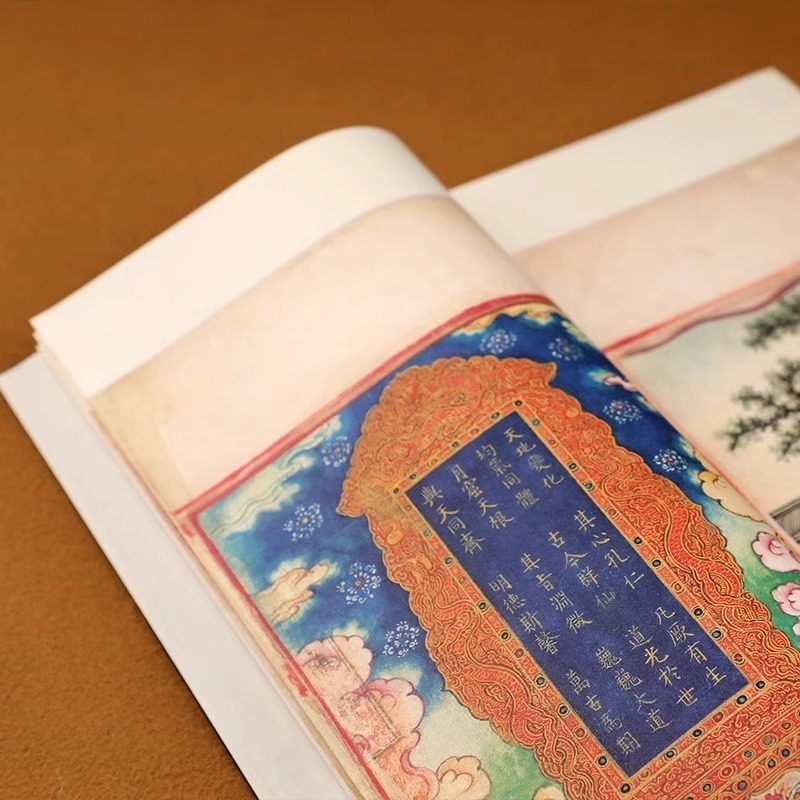 天地變化 其心孔仁 凡厥有生
均氣同體 古今群仙 道光於世
月窟天根 其旨淵微 巍巍大道
與天同齊 明德斯馨 萬古為期